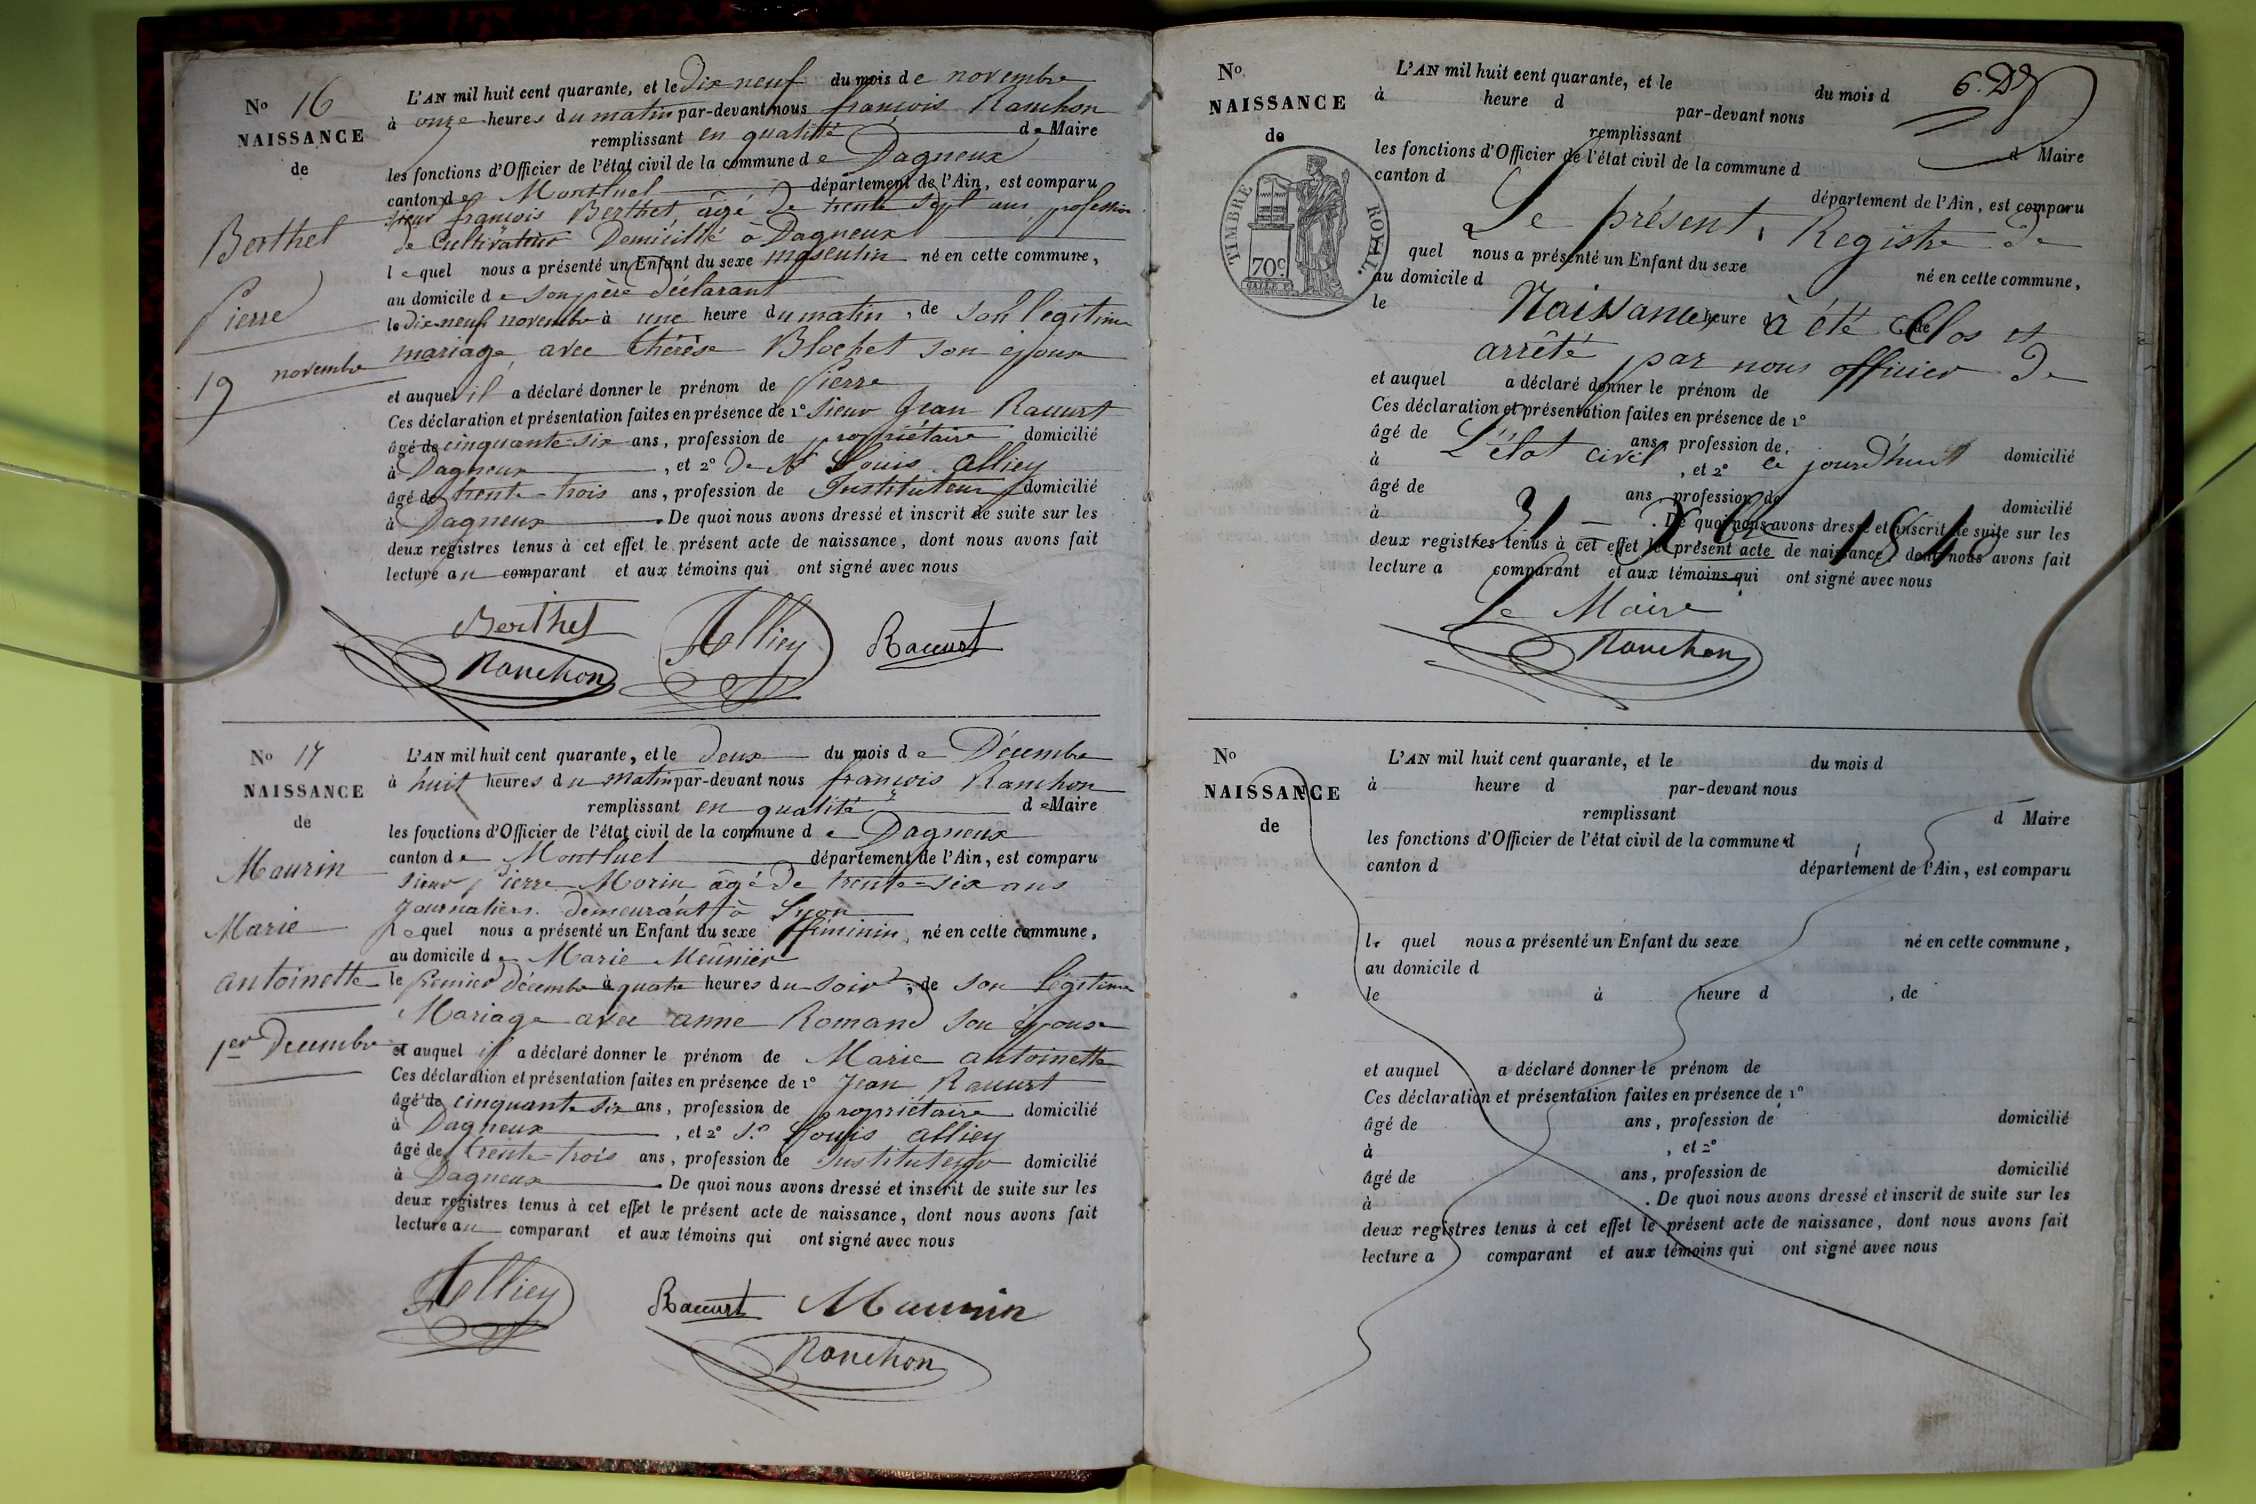 N° 16
NAISSANCE
de
Berthet
Pierre
19 novembre
L'AN mil huit cent quarante, et le Dix neuf du mois de novembre
à onze heures du matin par-devant nous françois Ranchon
remplissant en qualité de Maire
les fonctions d'Officier de l'état civil de la commune de Dagneux
canton de Montluel département de l'Ain, est comparu
sieur françois Berthet, âgé de trente sept ans, profession
de Cultivateur Domicilié a Dagneux
lequel nous a présenté un Enfant du sexe masculin né en cette commune,
au domicile de son père déclarant
le dix-neuf novembre à une heure du matin, de son légitime
mariage avec thérèse Blochet son epouse
et auquel il a déclaré donner le prénom de Pierre
Ces déclaration et présentation faites en présence de 1° Sieur Jean Raccurt
âgé de cinquante-six ans, profession de propriétaire domicilié
à Dagneux, et 2° de Louis Alliey
âgé de trente-trois ans, profession de Instituteur domicilié
à Dagneux. De quoi nous avons dressé et inscrit de suite sur les
deux registres tenus à cet effet le présent acte de naissance, dont nous avons fait
lecture au comparant et aux témoins qui ont signé avec nous
Berthet Alliey Raccurt
Ranchon
N° 17
NAISSANCE
de
Maurin
Marie
antoinette
1er Decembre
L'AN mil huit cent quarante, et le Deux du mois de Décembre
à huit heures du matin par-devant nous françois Ranchon
remplissant en qualité de Maire
les fonctions d'Officier de l'état civil de la commune de Dagneux
canton de Montluel département de l'Ain, est comparu
sieur Pierre Morin âgé de trente-six ans
Journaliers demeurant à Lyon
lequel nous a présenté un Enfant du sexe féminin, né en cette commune,
au domicile de Marie Meünier
le premier Décembre à quatre heures du soir, de son légitime
Mariage avec anne Romand son épouse
et auquel il a déclaré donner le prénom de Marie antoinette
Ces déclaration et présentation faites en présence de 1° Jean Raccurt
âgé de cinquante six ans, profession de propriétaire domicilié
à Dagneux, et 2° Sr Louis alliey
âgé de trente-trois ans, profession de Instituteur domicilié
à Dagneux. De quoi nous avons dressé et inscrit de suite sur les
deux registres tenus à cet effet le présent acte de naissance, dont nous avons fait
lecture au comparant et aux témoins qui ont signé avec nous
Alliey Raccurt Maurin
Ranchon
N°
NAISSANCE
de
TIMBRE ROYAL.
70c
L'AN mil huit cent quarante, et le du mois d
à heure d par-devant nous
remplissant d Maire
les fonctions d'Officier de l'état civil de la commune d
canton d département de l'Ain, est comparu
Le présent Registre de
quel nous a présenté un Enfant du sexe né en cette commune,
au domicile d
le heure d , de
Naissance à été Clos et
arrêté par nous officier de
et auquel a déclaré donner le prénom de
Ces déclaration et présentation faites en présence de 1°
âgé de ans, profession de domicilié
L'état civil ce jourd'huit
à , et 2°
âgé de ans profession de domicilié
31 Xbre 1840
à . De quoi nous avons dressé et inscrit de suite sur les
deux registres tenus à cet effet le présent acte de naissance, dont nous avons fait
lecture a comparant et aux témoins qui ont signé avec nous
Le Maire
Ranchon
N°
NAISSANCE
de
L'AN mil huit cent quarante, et le du mois d
à heure d par-devant nous
remplissant d Maire
les fonctions d'Officier de l'état civil de la commune d
canton d département de l'Ain, est comparu
le quel nous a présenté un Enfant du sexe né en cette commune,
au domicile d
le à heure d , de
et auquel a déclaré donner le prénom de
Ces déclaration et présentation faites en présence de 1°
âgé de ans, profession de domicilié
à , et 2°
âgé de ans, profession de domicilié
à . De quoi nous avons dressé et inscrit de suite sur les
deux registres tenus à cet effet le présent acte de naissance, dont nous avons fait
lecture a comparant et aux témoins qui ont signé avec nous